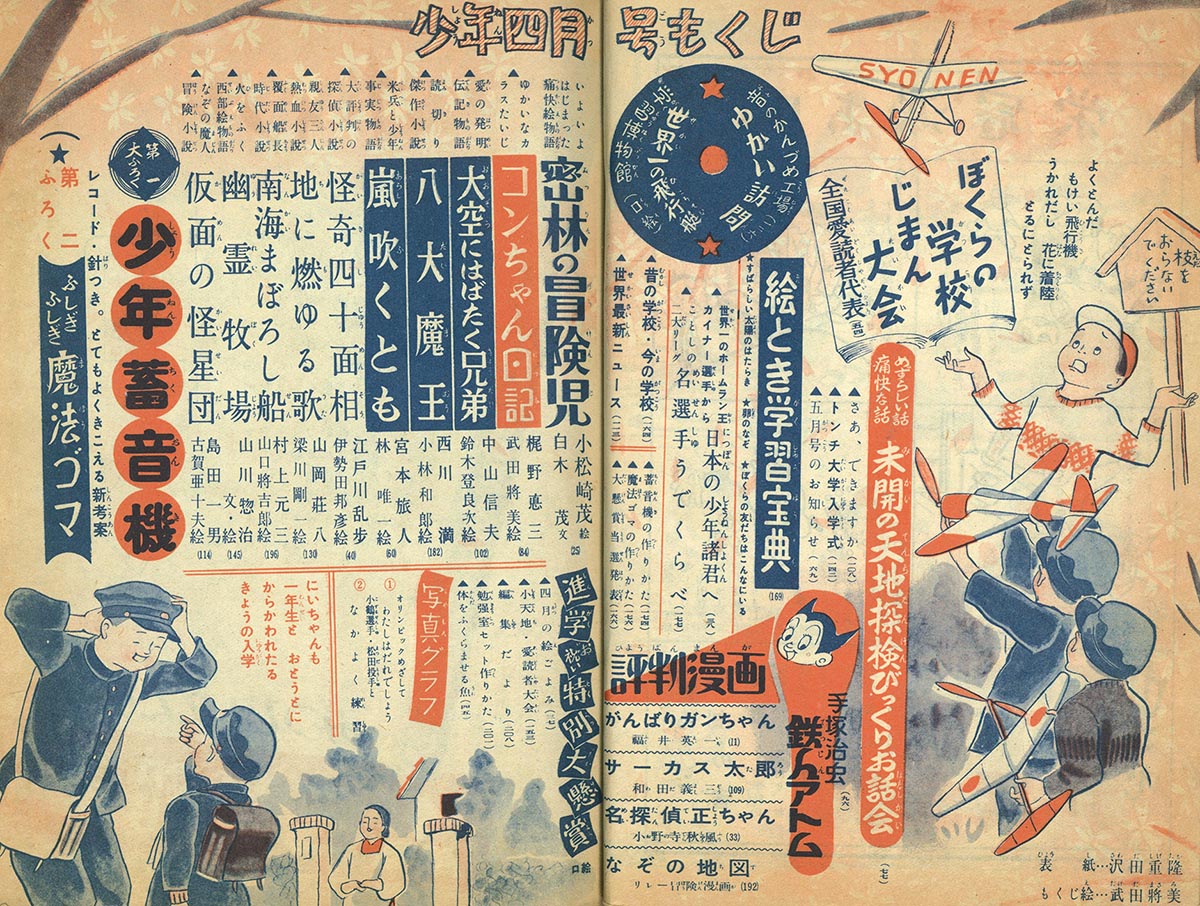 少年四月号もくじ
SYONEN
枝を
おらない
でください
よくとんだ
もけい飛行機
うかれだし 花に着陸
とるにとられず
ぼくらの
学校
じまん
大会
全国愛読者代表(五四)
音のかんづめ工場(一六)
ゆかい訪問
世界一の飛行艇
(口絵)
めずらしい話
痛快な話
未開の天地探検びっくりお話会
(七七)
さあ、できますか(一〇六)
▲トンチ大学入学式(一四二)
▲五月号のお知らせ(六九)
絵とき学習宝典
(169)
★すばらしい太陽のはたらき ★卵のなぞ ★ぼくらの友だちはこんなにいる
世界一のホームラン王
カイナー選手から
日本の少年諸君へ(三八)
ことしの
二大リーグ
名選手うでくらべ(一七四)
▲昔の学校・今の学校(六四)
▲世界最新ニュース(一二三)
▲蓄音機の作りかた
▲魔法ゴマの作りかた
▲大懸賞当選発表
手塚治虫
鉄人アトム
(九六)
評判漫画
がんばりガンちゃん
福井英一(11)
サーカス太郎
和田義三(109)
名探偵正ちゃん
小野寺秋風(33)
なぞの地図
リレー冒険漫画(192)
表 紙…沢田重隆
もくじ絵…武田將美
いよいよ
はじまった
痛快絵物語
密林の冒険児
小松崎茂絵
白木 茂文
(25)
▲ゆかいなカ
ラスたいじ
コンちゃん日記
梶野悳三
武田將美絵
(84)
▲愛の発明
伝記物語
大空にはばたく兄弟
中山信夫
鈴木登良次絵
(102)
▲読切り
傑作小説
八大魔王
西川 満
小林和郎絵
(182)
▲米兵と少年
事実物語
嵐吹くとも
宮本旅人
林 唯一絵
(60)
▲大評判の
探偵小説
怪奇四十面相
江戸川乱歩
伊勢田邦彦絵
(40)
▲親友三人
熱血小説
地に燃ゆる歌
山岡荘八
梁川剛一絵
(130)
▲覆面船長
時代小説
南海まぼろし船
村上元三
山口將吉郎絵
(196)
▲火をふく
西部絵物語
幽霊牧場
山川惣治
文・絵
(145)
▲なぞの魔人
冒険小説
仮面の怪星団
島田一男
古賀亜十夫絵
(114)
第一
大ふろく
少年蓄音機
レコード・針つき。とてもよくきこえる新考案
(★第二
ふろく
ふしぎ
ふしぎ
魔法ゴマ
進学お祝い特別大懸賞
口絵
四月の絵ごよみ(三七)
▲小天地・愛読者大会(一五三)
▲編集だより(二〇八)
▲勉強室セット作りかた(二〇一)
▲体をふくらませる魚(四五)
写真グラフ
① オリンピックめざして
わたしはだれでしょう
② 小鶴選手・松田投手と
なかよく練習
にいちゃんも
一年生と おとうとに
からかわれたる
きょうの入学